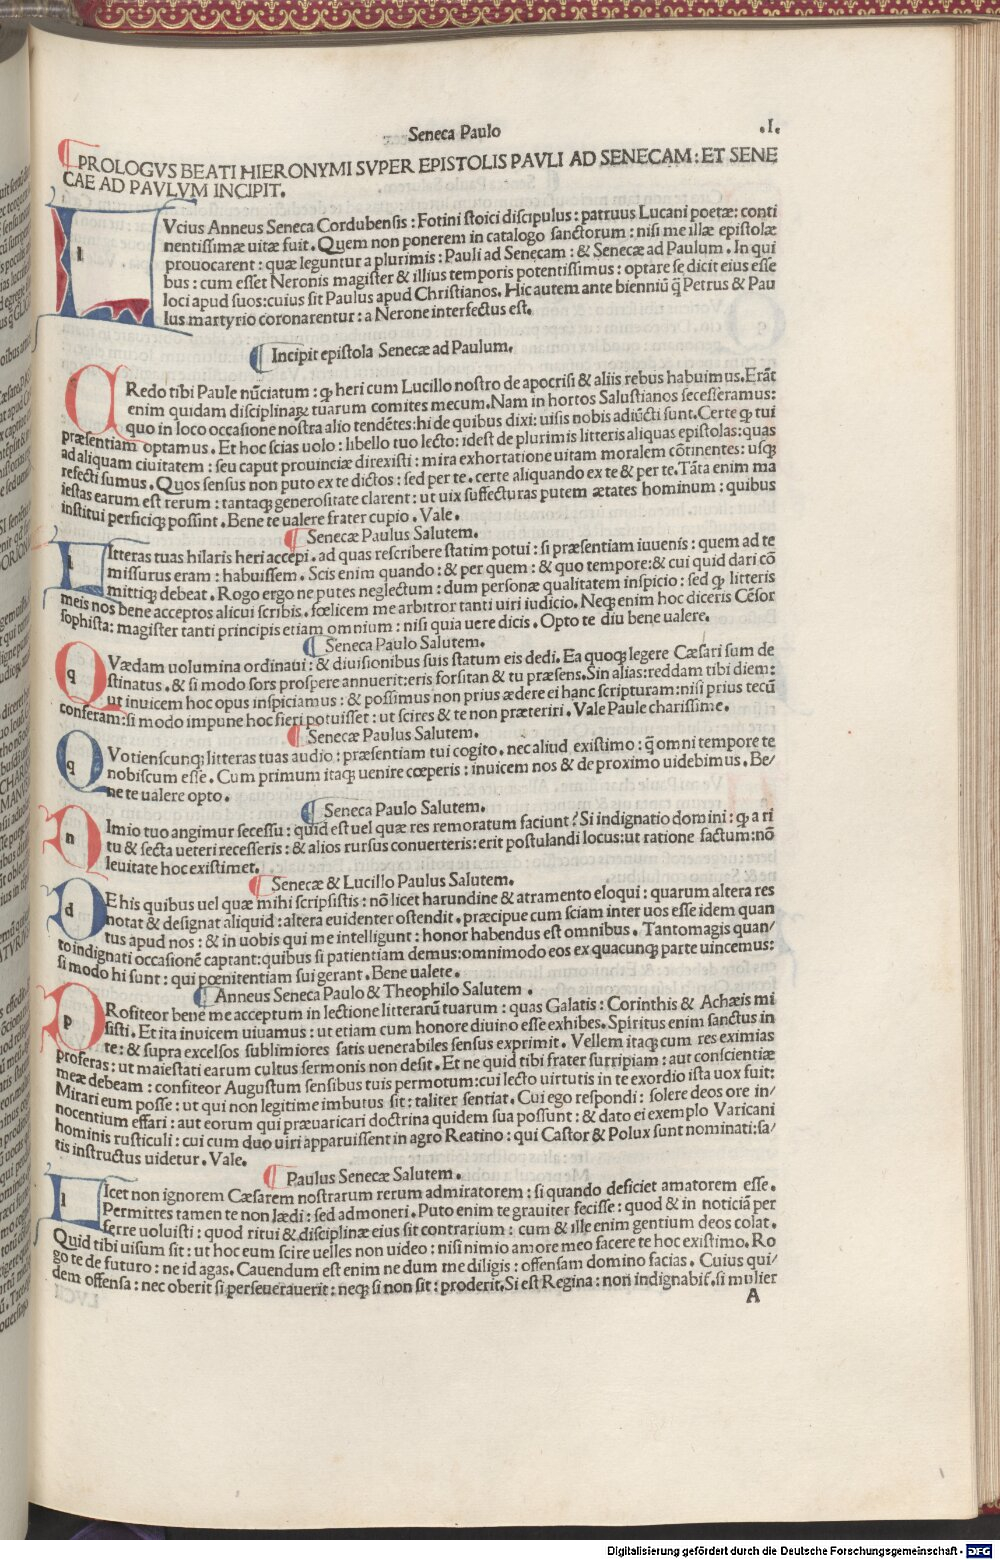 Seneca Paulo
.I.
PROLOGVS BEATI HIERONYMI SVPER EPISTOLIS PAVLI AD SENECAM: ET SENE
CAE AD PAVLVM INCIPIT.
LVcius Anneus Seneca Cordubensis: Fotini stoici discipulus: patruus Lucani poetæ: conti
nentissimæ uitæ fuit. Quem non ponerem in catalogo sanctorum: nisi me illæ epistolæ
prouocarent: quæ leguntur a plurimis: Pauli ad Senecam: & Senecæ ad Paulum. In qui
bus: cum esset Neronis magister & illius temporis potentissimus: optare se dicit eius esse
loci apud suos: cuius sit Paulus apud Christianos. Hic autem ante bienniū q̄ Petrus & Pau
lus martyrio coronarentur: a Nerone interfectus est.
Incipit epistola Senecæ ad Paulum.
CRedo tibi Paule nūciatum: ꝙ heri cum Lucillo nostro de apocrisi & aliis rebus habuimus. Erāt
enim quidam disciplinaꝝ tuarum comites mecum. Nam in hortos Salustianos secesseramus:
quo in loco occasione nostra alio tendētes: hi de quibus dixi: uisis nobis adiūcti sunt. Certe ꝙ tui
præsentiam optamus. Et hoc scias uolo: libello tuo lecto: idest de plurimis litteris aliquas epistolas: quas
ad aliquam ciuitatem: seu caput prouinciæ direxisti: mira exhortatione uitam moralem cōtinentes: usqꝫ
refecti sumus. Quos sensus non puto ex te dictos: sed per te. certe aliquando ex te & per te. Tāta enim ma
iestas earum est rerum: tantaqꝫ generositate clarent: ut uix suffecturas putem ætates hominum: quibus
institui perficiqꝫ possint. Bene te ualere frater cupio. Vale.
Senecæ Paulus Salutem.
LItteras tuas hilaris heri accepi. ad quas rescribere statim potui: si præsentiam iuuenis: quem ad te
missurus eram: habuissem. Scis enim quando: & per quem: & quo tempore: & cui quid dari cō
mittiqꝫ debeat. Rogo ergo ne putes neglectum: dum personæ qualitatem inspicio: sed ꝙ litteris
meis nos bene acceptos alicui scribis. fœlicem me arbitror tanti uiri iudicio. Neqꝫ enim hoc diceris Cēsor
sophista: magister tanti principis etiam omnium: nisi quia uere dicis. Opto te diu bene ualere.
Seneca Paulo Salutem.
QVædam uolumina ordinaui: & diuisionibus suis statum eis dedi. Ea quoqꝫ legere Cæsari sum de
stinatus. & si modo sors prospere annuerit: eris forsitan & tu præsens. Sin alias: reddam tibi diem:
ut inuicem hoc opus inspiciamus: & possimus non prius ædere ei hanc scripturam: nisi prius tecū
conferam: si modo impune hoc fieri potuisset: ut scires & te non præteriri. Vale Paule charissime.
Senecæ Paulus Salutem.
QVotienscunqꝫ litteras tuas audio: præsentiam tui cogito. nec aliud existimo: q̄ omni tempore te
nobiscum esse. Cum primum itaqꝫ uenire cœperis: inuicem nos & de proximo uidebimus. Be/
ne te ualere opto.
Seneca Paulo Salutem.
NImio tuo angimur secessu: quid est uel quæ res remoratum faciunt? Si indignatio domini: ꝙ a ri
tu & secta ueteri recesseris: & alios rursus conuerteris: erit postulandi locus: ut ratione factum: nō
leuitate hoc existimet.
Senecæ & Lucillo Paulus Salutem.
DE his quibus uel quæ mihi scripsistis: nō licet harundine & atramento eloqui: quarum altera res
notat & designat aliquid: altera euidenter ostendit. præcipue cum sciam inter uos esse idem quan
tus apud nos: & in uobis qui me intelligunt: honor habendus est omnibus. Tantomagis quan/
to indignati occasionē captant: quibus si patientiam demus: omnimodo eos ex quacunqꝫ parte uincemus:
si modo hi sunt: qui pœnitentiam sui gerant. Bene ualete.
Anneus Seneca Paulo & Theophilo Salutem.
PRofiteor bene me acceptum in lectione litterarū tuarum: quas Galatis: Corinthis & Achæis mi
sisti. Et ita inuicem uiuamus: ut etiam cum honore diuino esse exhibes. Spiritus enim sanctus in
te: & supra excelsos sublimiores satis uenerabiles sensus exprimit. Vellem itaqꝫ cum res eximias
proferas: ut maiestati earum cultus sermonis non desit. Et ne quid tibi frater surripiam: aut conscientiæ
meæ debeam: confiteor Augustum sensibus tuis permotum: cui lecto uirtutis in te exordio ista uox fuit:
Mirari eum posse: ut qui non legitime imbutus sit: taliter sentiat. Cui ego respondi: solere deos ore in/
nocentium effari: aut eorum qui præuaricari doctrina quidem sua possunt: & dato ei exemplo Varicani
hominis rusticuli: cui cum duo uiri apparuissent in agro Reatino: qui Castor & Polux sunt nominati: sa/
tis instructus uidetur. Vale.
Paulus Senecæ Salutem.
LIcet non ignorem Cæsarem nostrarum rerum admiratorem: si quando deficiet amatorem esse.
Permittes tamen te non lædi: sed admoneri. Puto enim te grauiter fecisse: quod & in noticiā per
ferre uoluisti: quod ritui & disciplinæ eius sit contrarium: cum & ille enim gentium deos colat.
Quid tibi uisum sit: ut hoc eum scire uelles non uideo: nisi nimio amore meo facere te hoc existimo. Ro
go te de futuro: ne id agas. Cauendum est enim ne dum me diligis: offensam domino facias. Cuius qui/
dem offensa: nec oberit si perseuerauerit: neqꝫ si non sit: proderit. Si est Regina: non indignabit̃. si mulier
A
Digitalisierung gefördert durch die Deutsche Forschungsgemeinschaft - DFG